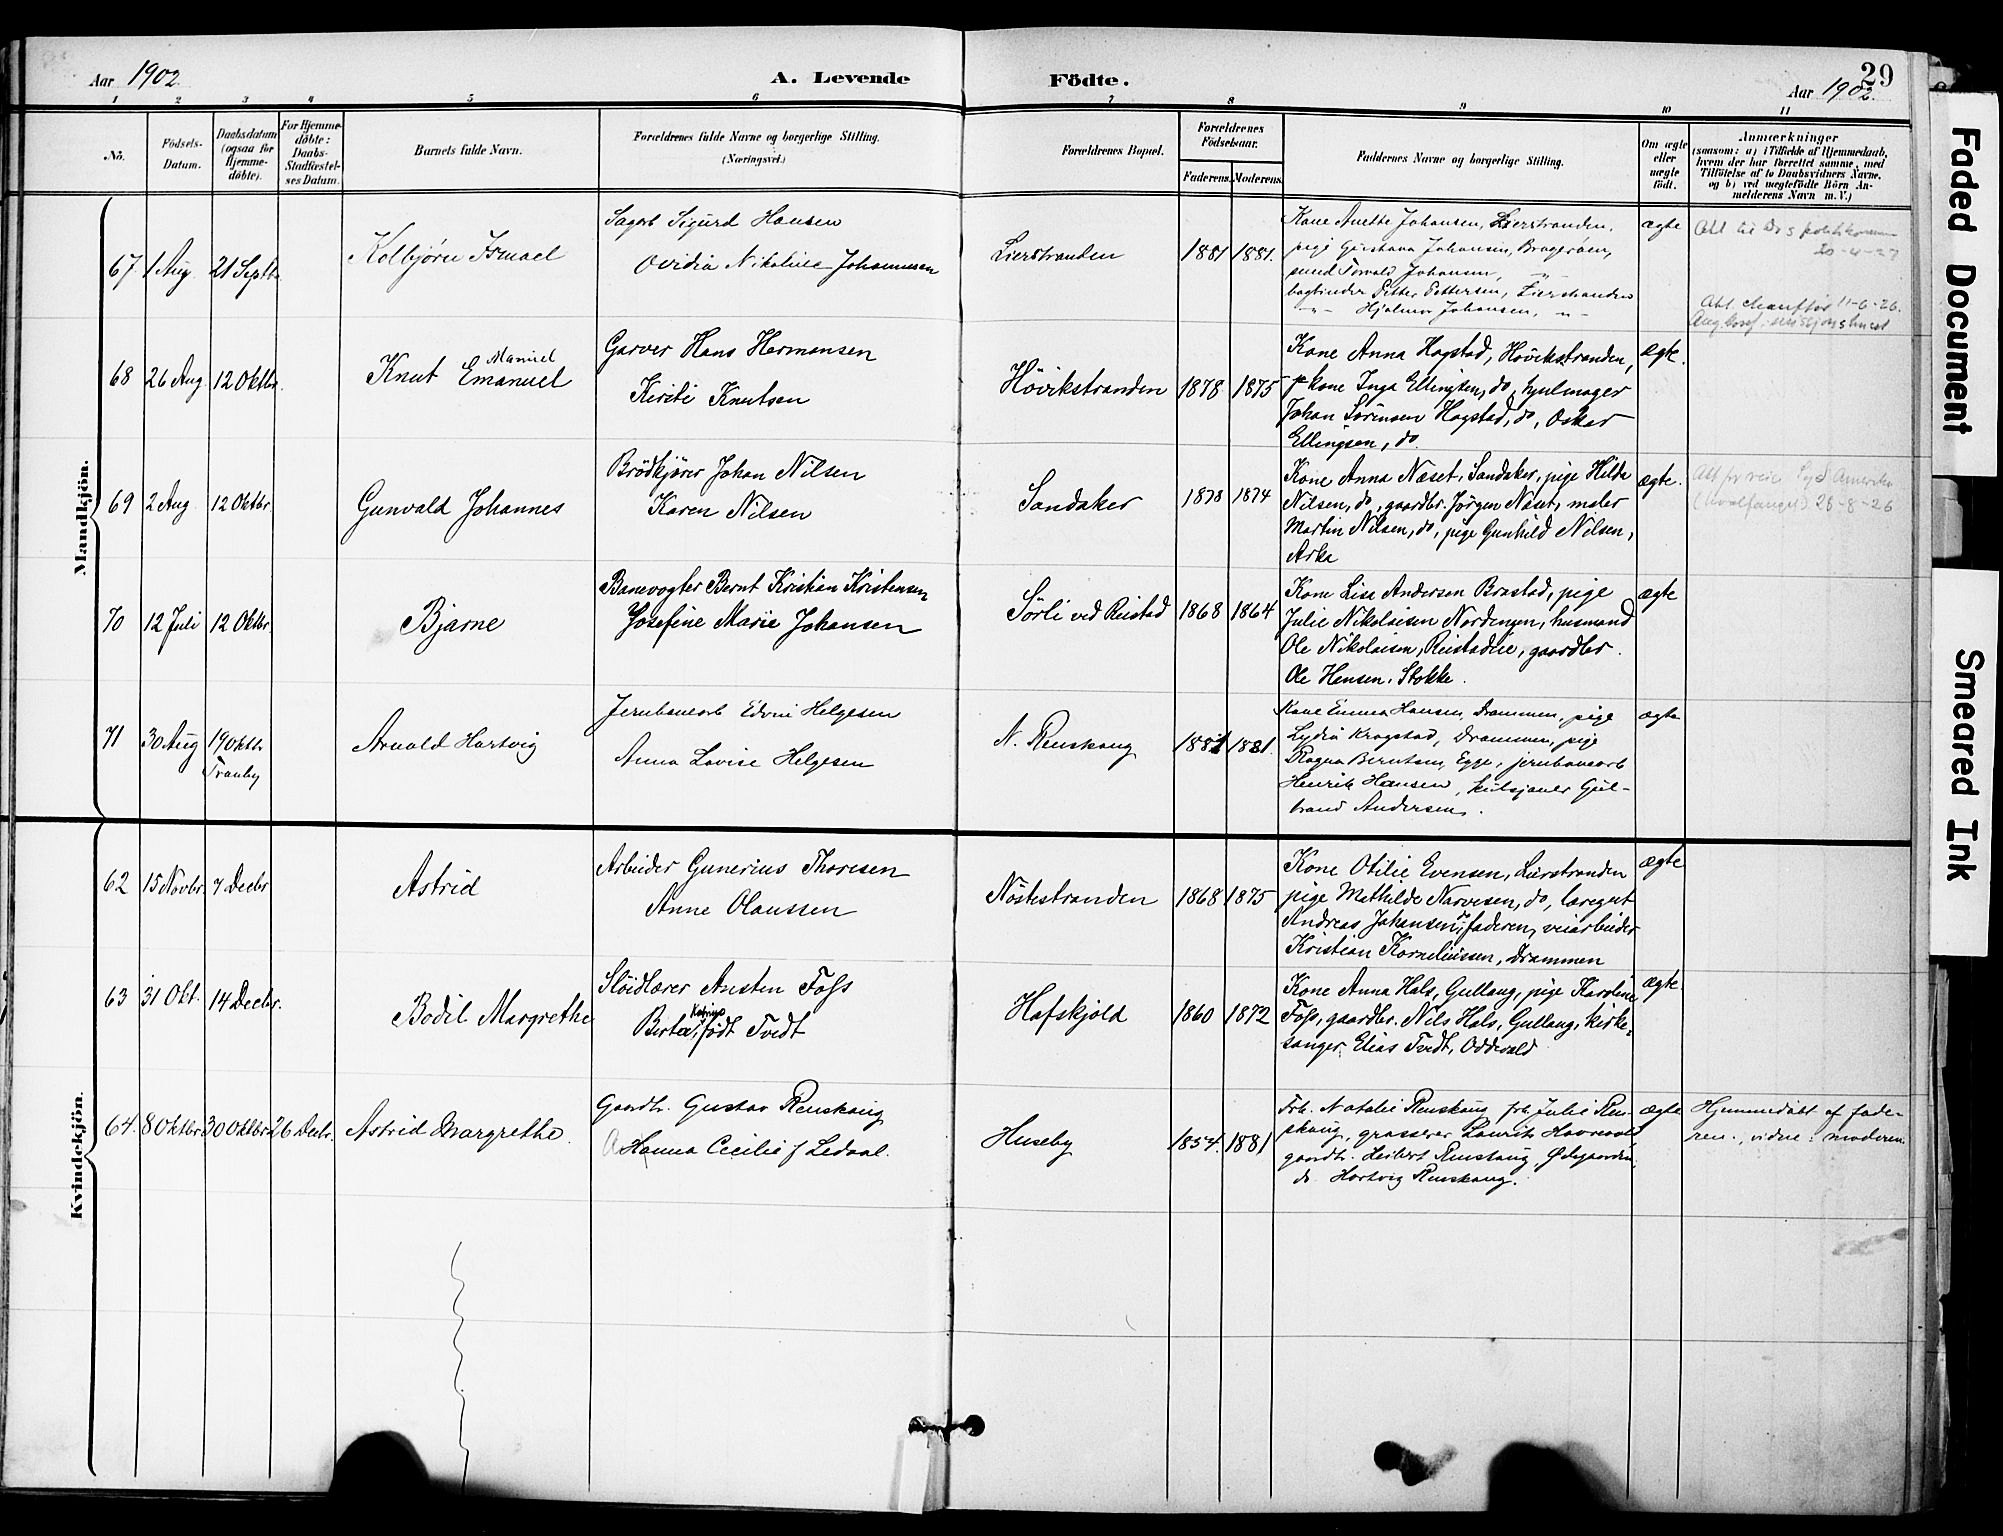 Aar 1902.
A. Levende Födte.
29
Aar 1902.
1 2 3 4 5 6 7 8 9 10 11
No.
Födsels-
Datum.
Daabsdatum
(ogsaa for
Hjemme-
döbte).
For Hjemme-
döbte:
Daabs-
Stadfæstel-
ses Datum.
Barnets fulde Navn.
Forældrenes fulde Navne og borgerlige Stilling.
(Næringsvei.)
Forældrenes Bopæl.
Forældrenes
Födselsaar.
Faderens.
Moderens.
Faddernes Navne og borgerlige Stilling.
Om ægte
eller
uægte
födt.
Anmærkninger
(saasom: a) i Tilfælde af Hjemmedaab,
hvem der har forrettet samme, med
Tilföielse af to Daabsvidners Navne,
og b) ved uægtefödte Börn An-
melderens Navn m. V.)
Mandkjön.
67 1 Aug. 21 Septb.
Kolbjörn Ismael
Sagarb Sigurd Hansen
Ovidia Nikoline Johannesen
Lierstranden
1881 1881.
Kone Anette Johansen, Lierstranden,
pige Gustava Johansen, Bragerøen,
Torvald Johansen, -"-
bogbinder Petter Pettersen, Lierstranden
-"- Hjalmar Johansen, -"-
ægte
20-4-27
11-6-26.
68 26 Aug. 12 Oktbr.
Manuel
Knut Emanuel
Garver Hans Hermansen
Kirsti Knutsen
Hövikstranden
1878 1875
Kone Anna Hagstad, Hövikstranden,
kone Inga Ellingsen, do, hjulmager
Johan Sörensen Hagstad, do, Oskar
Ellingsen, do.
ægte.
69 2 Aug. 12 Oktbr.
Gunvald Johannes
Brödkjörer Johan Nilsen
Karen Nilsen
Sandaker
1878 1874
Kone Anna Næset, Sandaker, pige Hilda
Nilsen, do, gaardbr. Jörgen Næset, maler
Martin Nilsen, do, pige Gunhild Nilsen,
Arka
ægte.
Att for reise Syd Amerika
(hvalfanget) 25-8-26
70 12 Juli 12 Oktbr.
Bjarne
Banevogter Bernt Kristian Kristensen
Josefine Marie Johansen
Sörli ved Reistad
1868 1864
Kone Lise Andersen Brastad, pige
Julie Nikolaisen Nordengen, husmand
Ole Nikolaisen, Reistadlie, gaardbr.
Ole Hansen, Stokke.
ægte
71 30 Aug 19 oktbr
Tranby
Arnald Hartvig
Jernbanearb Edvin Helgesen
Anna Lovise Helgesen
N. Renskaug
1881 1881.
Kone Emma Hansen, Drammen, pige
Lydia Kragstad, Drammen, pige
Ragna Berntsen, Egge, jernbanearb
Henrik Hansen, Gul-
brand Andersen.
ægte
Kvindekjön.
62 15 Novbr. 7 Decbr
Astrid
Arbeider Gunerius Thoresen
Anne Olaussen
Nöstestranden
1868 1875
Kone Otilie Evensen, Lierstranden
pige Mathilde Narvesen, do, læregut
Andreas Johansen, do, faderen, veiarbeider
Kristian Korneliussen, Drammen
ægte
63 31 Okt. 14 Decbr.
Bodil Margrethe
Slöidlærer Austen Foss
Berta, födt Tvedt
Hafskjold
1860 1872
Kone Anna Hals, Gullaug, pige Karoline
Foss, gaardbr. Nils Hals, Gullaug, kirke-
sanger Elias Tvedt, Oddevald
ægte.
64. 8 Oktbr 30 Oktbr 26 Decbr.
Astrid Margrethe.
Gaardbr. Gustav Renskaug
Hanna Cecilie f Ledaal.
Huseby
1854. 1881
Frk. Natalie Renskaug, frk Julie Ren-
skaug, grosserer Laurits
gaardbr. Renskaug, Ødegaarden,
do. Hartvig Renskaug.
ægte
Hjemmedöbt af fade-
ren., vidne: moderen.
Faded Document
Smeared Ink